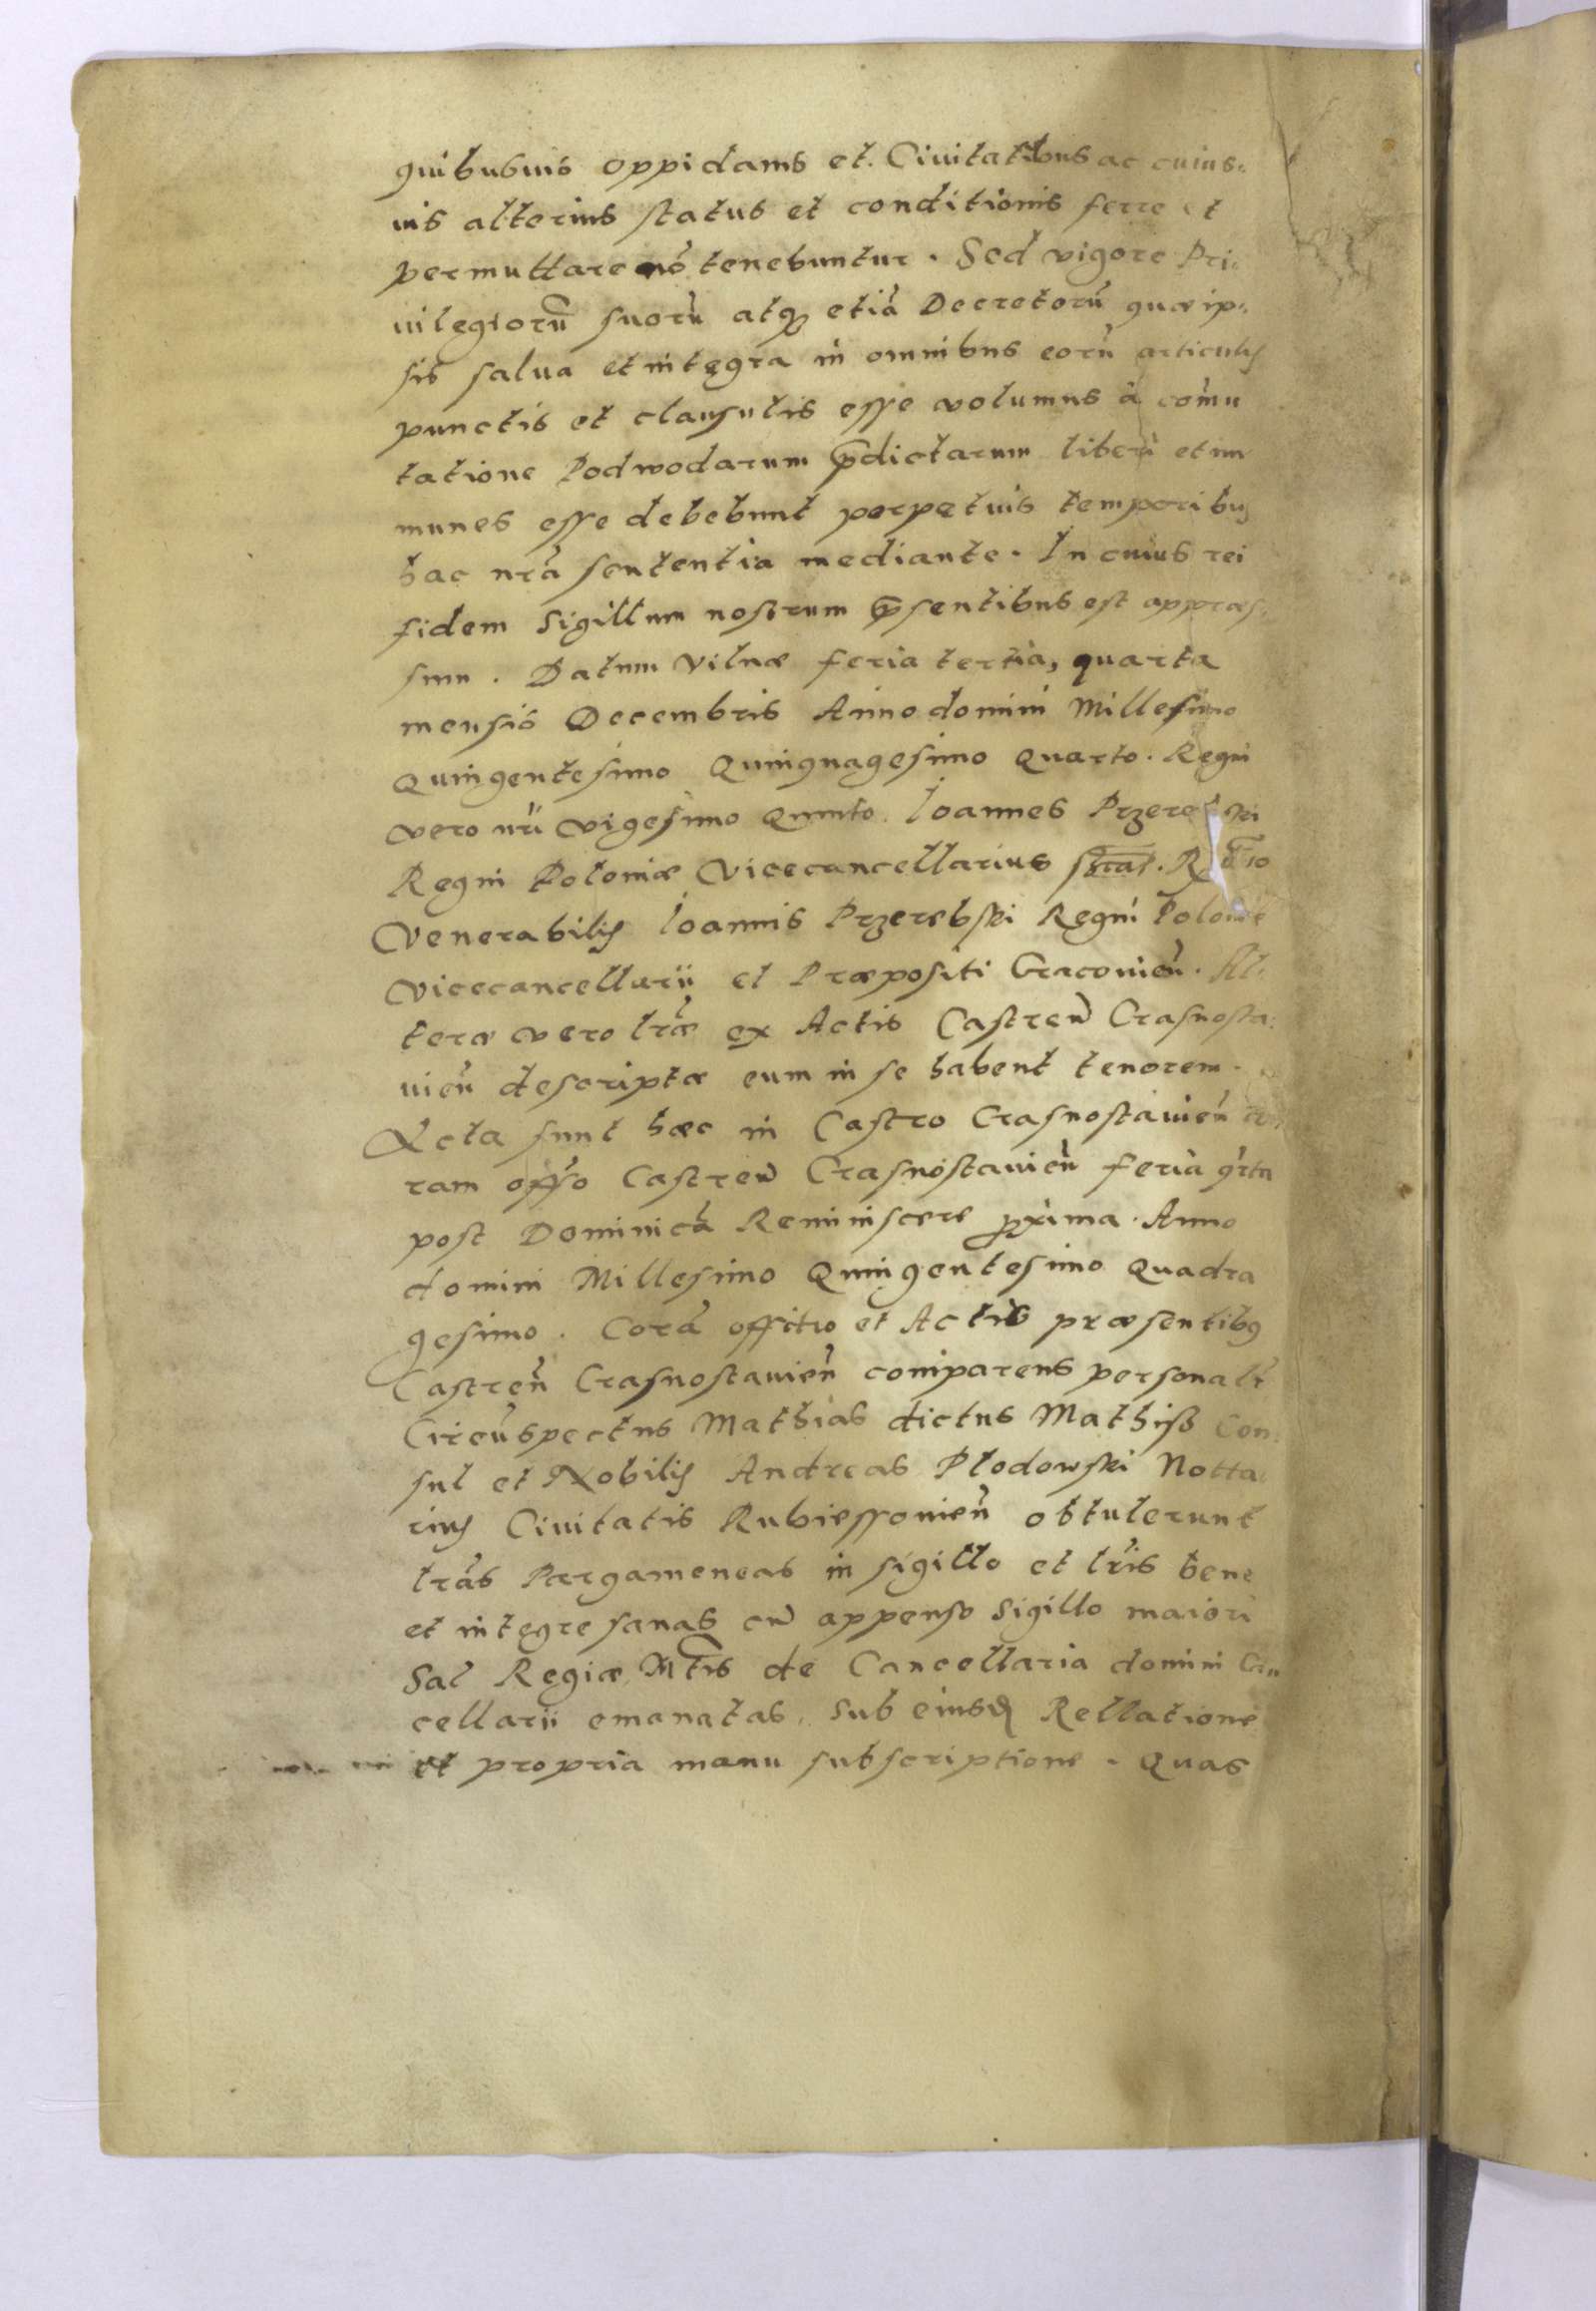 quibusuis oppidanis et Ciuitatibus ac cuius-
uis alterius status et conditionis ferre et
permuttare nō tenebuntur. Sed vigore Pri-
uilegiorū suorū atqꝫ etiā Decretorū quæ ip-
sis salua et integra in omnibus eorū articulis
punctis et clausulis esse volumus à comu
tatione Podwodarum p̄dictarum liberi et im
munes esse debebunt perpetuis temporibus
hac nr̄a sententia mediante. In cuius rei
fidem Sigillum nostrum p̄sentibus est appræs-
sum. Datum Vilnæ feria tertia, quarta
mensis Decembris Anno domini Millesimo
Quingentesimo Quinquagesimo Quarto. Regni
vero nr̄i vigesimo Quinto. Ioannes Przerebski
Regni Poloniæ Vicecancellarius
Venerabilis Ioannis Przerebski Regni Poloniæ
Vicecancellarii et Præpositi Cracouien̄. Al-
teræ vero lr̄æ ex Actis Castren̄ Crasnosta-
uien̄ descriptæ eum in se habent tenorem.
Acta sunt hæc in Castro Crasnostauien̄ co
ram offō Castren̄ Crasnostauien̄ feria qrta
post Dominicā Reminiscere p̄xima. Anno
domini Millesimo Quingentesimo Quadra
gesimo. Corā offitio et Actis præsentibꝫ
Castren̄ Crasnostauien̄ comparens personalr̄
Circūspectus Mathias dictus Mathiß Con-
sul et Nobilis Andreas Plodowski Notta
rius Ciuitatis Rubiessouien̄ obtulerunt
lr̄as Pargameneas in sigillo et lr̄is bene
et integre sanas cū appenso Sigillo maiori
Sac Regiæ Mtis de Cancellaria domini Can
cellarii emanatas. Sub eiusd Rellatione
et propria manu subscriptione. Quas